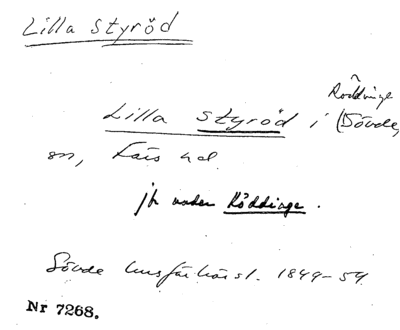 Lilla Styröd
Röddinge
Lilla Styröd i (Sövde,
sn, Färs hd
jfr under Röddinge.
Sövde husförhörsl. 1849-54.
Nr 7268.